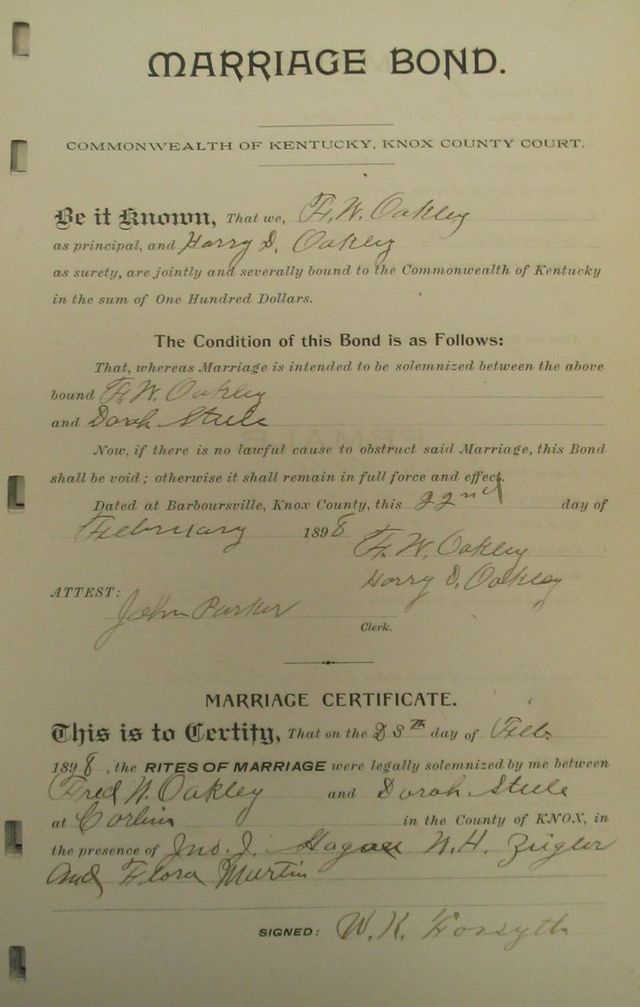 MARRIAGE BOND.
COMMONWEALTH OF KENTUCKY, KNOX COUNTY COURT.
Be it Known, That we, F. W. Oakley
as principal, and Harry D. Oakley
as surety, are jointly and severally bound to the Commonwealth of Kentucky
in the sum of One Hundred Dollars.
The Condition of this Bond is as Follows:
That, whereas Marriage is intended to be solemnized between the above
bound F. W. Oakley
and Dorah Steele
Now, if there is no lawful cause to obstruct said Marriage, this Bond
shall be void; otherwise it shall remain in full force and effect.
Dated at Barboursville, Knox County, this 22nd day of
February 1898
F. W. Oakley
Harry D. Oakley
ATTEST:
John Parker
Clerk.
MARRIAGE CERTIFICATE.
This is to Certify, That on the 23th day of Feb.
1898, the RITES OF MARRIAGE were legally solemnized by me between
Fred W. Oakley and Dorah Steele
at Corbin in the County of KNOX, in
the presence of Jno. J. Hagan W. H. Zigler
and Flora Martin
SIGNED: W. K. Forsyth